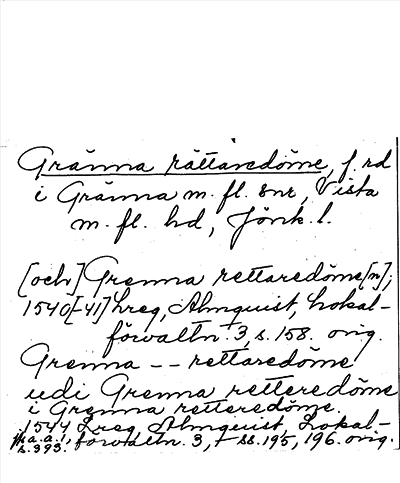 Gränna rättaredöme, f. rd
i Gränna m. fl. snr, Vista
m. fl. hd, Jönk. l.
[och] Grenna rettaredöme[n];
1540[-41] Lreg, Almquist, Lokal-
förvaltn. 3, s. 158. orig.
Grenna -- rettaredöme
udi Grenna retteredöme
i Grenna retteredöme.
1544 Lreg, Almquist, Lokal-
förvaltn. 3, ss. 195, 196. orig.
a. a. 1,
s. 393.